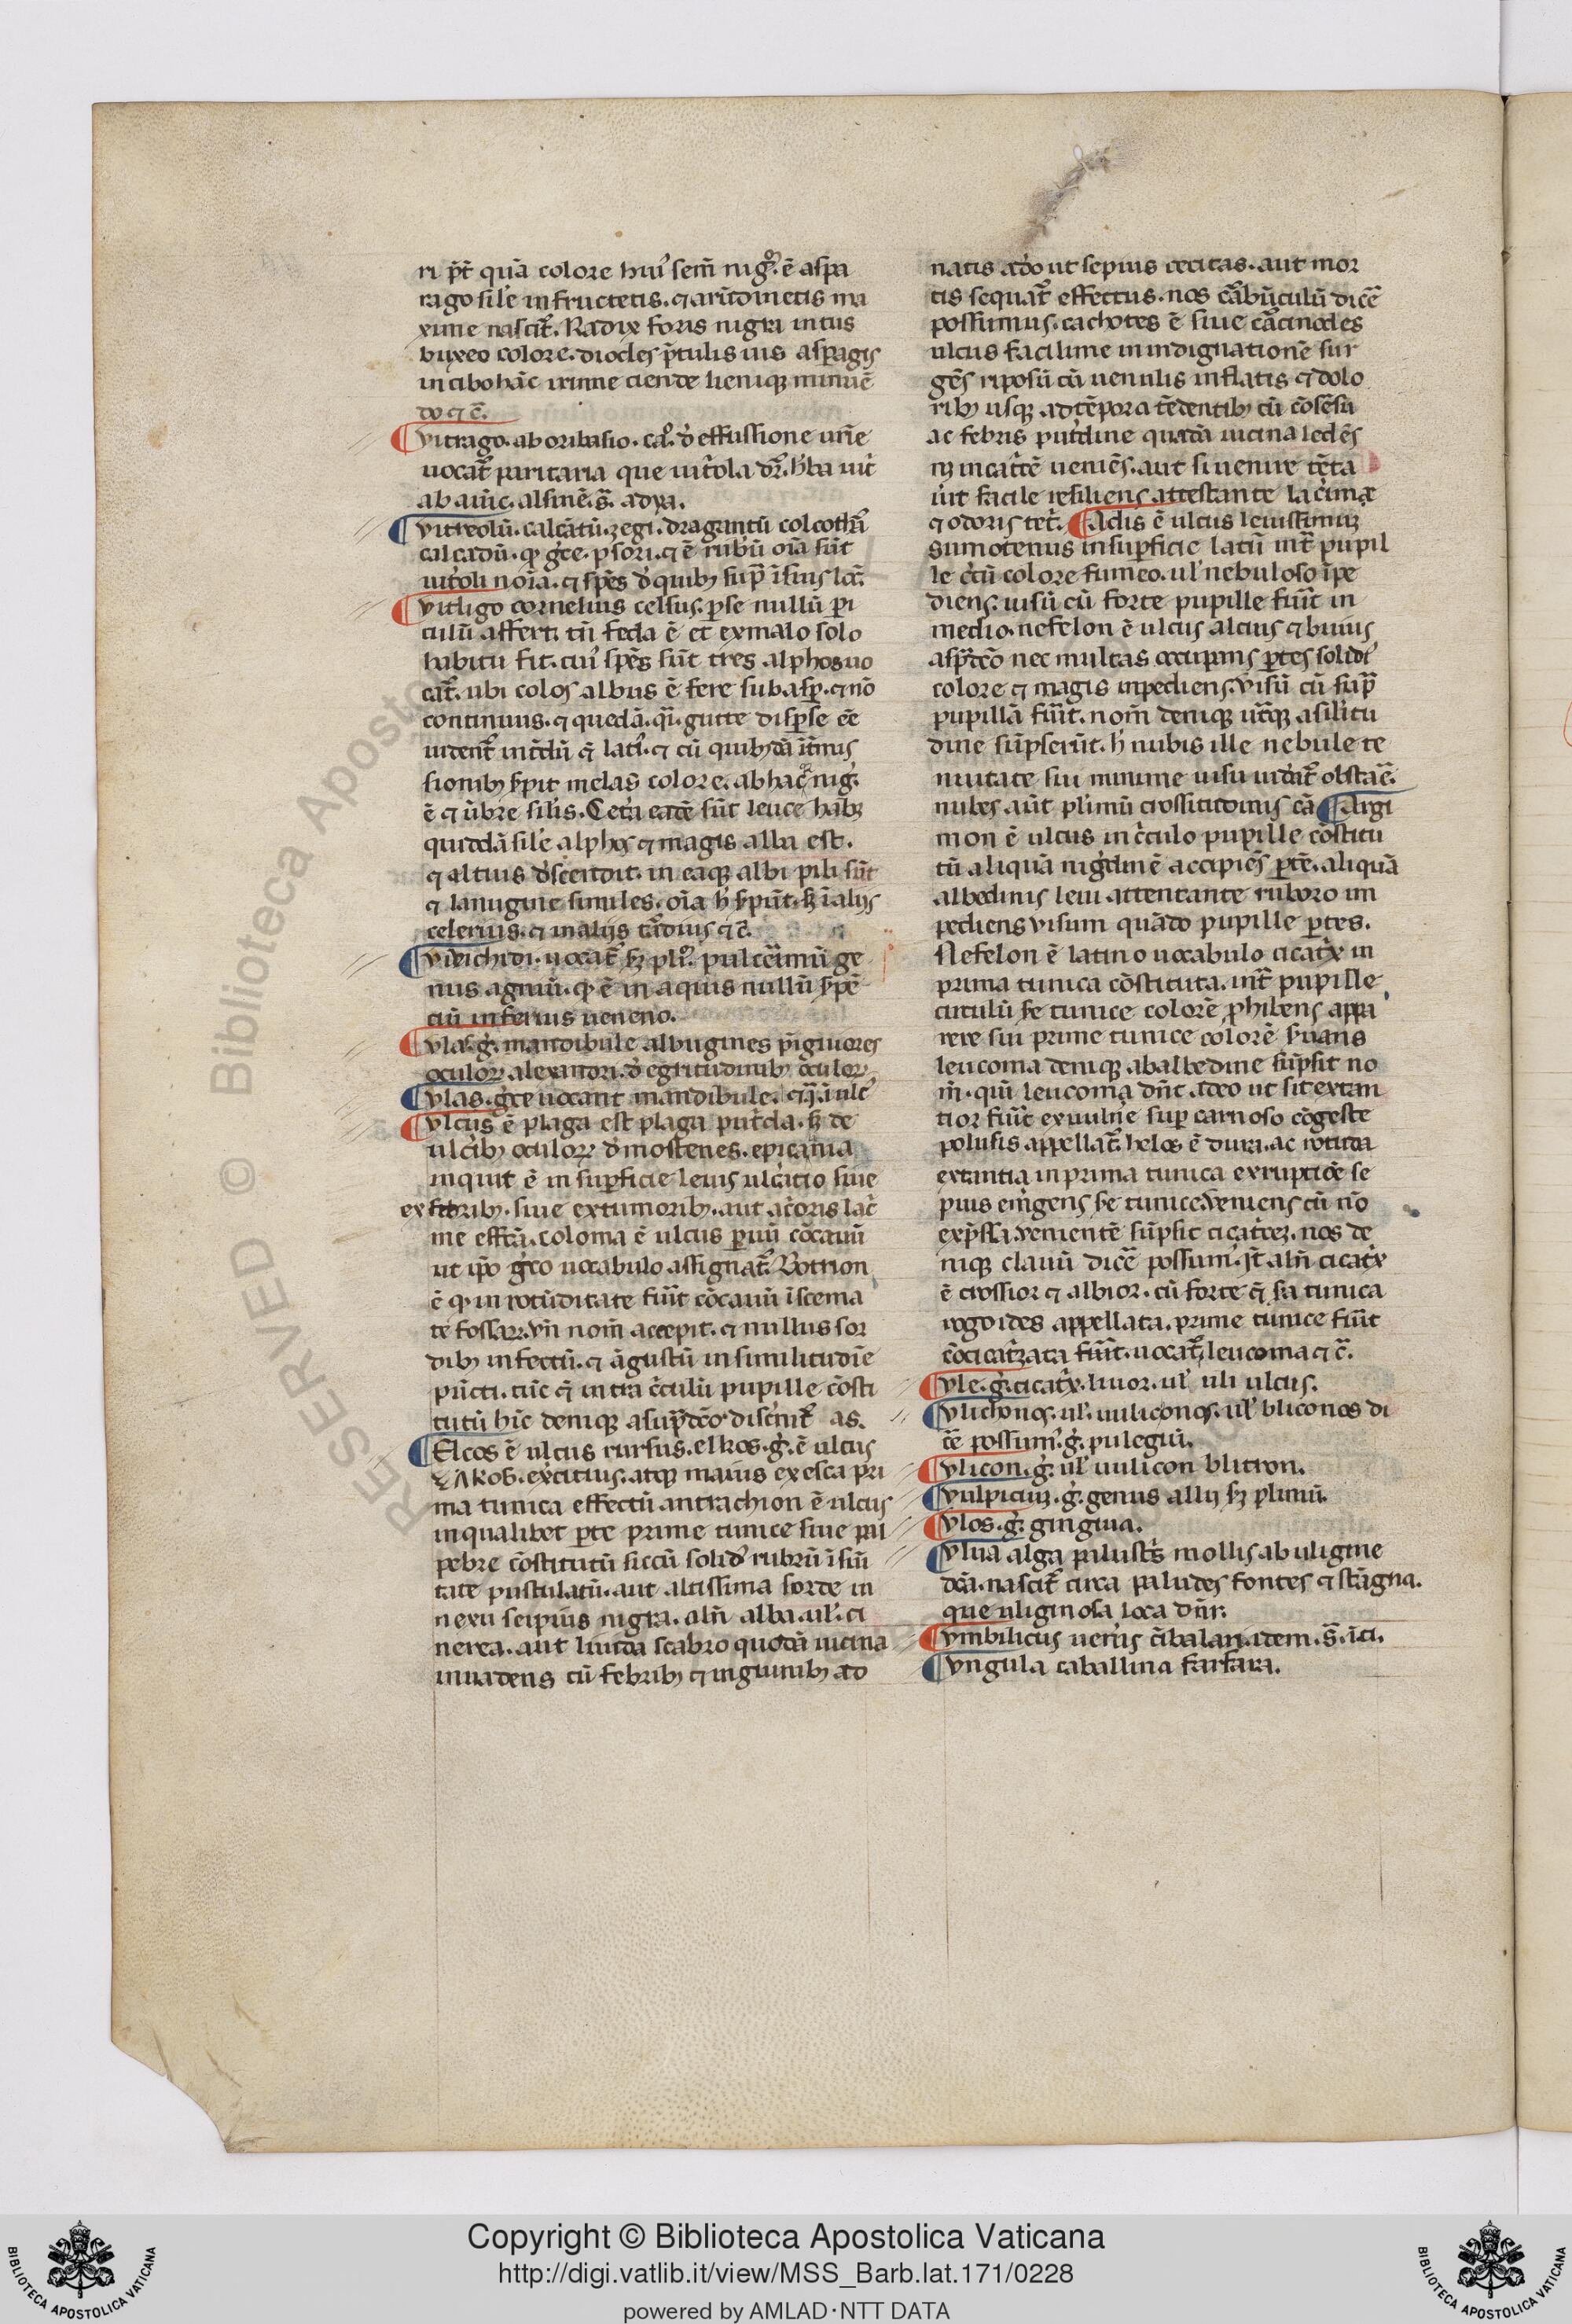 ri pt̄ quā colore huiꝰ sem̄ nigͦ. ē aspa
rago sil'e in fructetis. ⁊ arūdinetis ma
xime nascit̄. Radix foris nigra intus
buxeo colore. diocles p̄tulis uis aspagis
in cibo hāc urinne ciende lieniqꝫ minuē
do ⁊ c̄.
vitrago. ab oribasio. caͦ. d' effussione urīe
uocat̄ paritaria que uit'ola dr̄. h'ba uit'
alsinē. s̄.
vitreolū. calcātū. zegi. dragantū colcothā
calcadū. qꝫ g'ce. psori. ⁊ ē rubū oīa sūt
uit'oli noīa. ⁊ spēs d' quibꝫ sup̄ ī suis lōc.
vitligo cornelius celsus. p se nullū pi
culū affert. tn̄ feda ē et ex malo solo
habitu fit. cuiꝰ spēs sūt tres alphos uo
cat̄. ubi colos albus ē fere subasp̄. ⁊ nō
continuus. ⁊ quedā. q̄i. gutte disp̄se eē
uident̄ int'dū q̄ lati'. ⁊ cū quibꝫdā īt'mis
sionibꝫ s'pit melas colore. ab hac nig'.
ē ⁊ ūbre sil'is. Cet'a eadē sūt leuce habꝫ
quiddā sil'e alphos ⁊ magis alba est.
⁊ altius d'scendit. in eaqꝫ albi pili sūt
⁊ lanugine similes. oīa h' s'pūt. sꝫ ī alijs
celerius. ⁊ in alijs tārdius ⁊ c̄.
uocat̄ sꝫ pliꝰ. pulc'rimū ge
nus agniū. qꝫ ē in aquis nullū s'pē
ciū inferius ueneno.
vlas. g'. mandibule albugines pīgiuores
oculoꝝ alexandri. d' egritudinibꝫ oculoꝝ
vlas. g'ce uocant mandibule.
vlcus ē plaga est plaga put'da. sꝫ de
ulc'ibꝫ oculoꝝ d'mostenes. epicauma
inquit ē in sup̄ficie leuis ulc'atio siue
ex febribꝫ. siue ex tumoribꝫ. aut ac'oris lac'
me effcā. coloma ē ulcus p̄uū cōcauū
ut ip̄o g'co uocabulo assignat̄. Botrion
ē qꝫ in rotūditate fūit cōcauū īscema
te fossaꝝ. vn̄ nom̄ accepit. ⁊ nullus sor
dibꝫ infectū. ⁊ āgustū in similitudīe
pūcti. tūc q̄ intra c'culū pupille cōsti
tutū hīc denique a sup̄dcō disc'nit̄ as.
Elcos ē ulcus rursus. elkos. g'. ē ulcus
exc'itius. atqꝫ maius ex esca pri
ma tunica effectū antrachion ē ulcus
in qualibet p̄te prime tunice siue pal
pebre cōstitutū siccū solid' rubrū ī sūi
tate pustulatū. aut altissima sorde in
nexu seipius nigra. alii alba. ul'. ci
nerea. aut liuida scabro quodā uicina
inuadens cū febribꝫ ⁊ inguinibꝫ ad
natis adō ut sepius cecitas. aut mor
tis sequat̄ effectus. nos cābūculū dicē
possumus. cachotes ē siue cācinodes
ulcus facilime in indignationē sur
gēs riposū cū uenulis inflatis ⁊ dolo
ribꝫ usqꝫ ad tēpora tēdentibꝫ cū cōsēsu
ac febris putdine quadā uicina ledēs
uenies. aut si uenire tēta
ūit facile resiliens attestante lac'imaꝝ
⁊ odoris tet'. Aclis ē ulcus leuissimuꝫ
sumotenus in sup̄ficie latū int̄ pupil
le c'cū colore fumeo. ul' nebuloso īpe
diens. uisū cū forte pupille fūit in
medio. nefelon ē ulcus alcius ⁊ buius
asp'dcō nec multas occupans p̄tes solidi'
colore ⁊ magis inpediens. visū cū sup̄
pupillā fūit. nom̄ deniqꝫ ut̄qꝫ a silitu
dine sūpserūt. h' nubis ille nebule te
nuitate sui minime uisu uidit̄ obstāē.
nubes aūt plimū crossitudinis cā Argi
mon ē ulcus in c'culo pupille cōstitu
tū aliquā nig'dinē accipiēs p̄tē. aliquā
albedinis leui attentante ruboro im
pediens visum quādo pupille p̄tes.
Nefelon ē latino uocabulo cicat'x in
prima tunica cōstituta. int̄ pupille
circulū se tunice colorē phibens appa
rere sui prime tunice colorē s'uans
leucoma deniqꝫ ab albedine sūpsit no
m̄. quū leucoma dn̄t adeo ut sit extan
tior fūit ex uuln'e sup carnoso cōgeste
polusis appellat̄. helos ē dura. ac rotūda
extantia in prima tunica eruptiōe se
pius em'gens se tunice. veniens cū nō
exp̄ssa. venientē sūpsit cicat'cez. nos de
nique clauū dicē possumꝰ. jt̄ alīi cicat'x
ē crossior ⁊ albior. cū forte q̄ sa tunica
rogoides appellata. prime tunice fūit
cōcicat'zata fūit. uocat̄ leucoma ⁊ c̄.
vle. g'. cicat'x. liuor. ul' uli ulcus.
vlichonos. ul'. uuliconos. ul' bliconos di
cē possumꝰ. g'. pulegiū.
vlicon. g'. ul' uulicon blitron.
vulpicuꝫ. g'. genus allij sꝫ plimū.
vlos. g'. gingiua.
vlua alga palust's mollis ab uligine
dcā. nascit̄ circa paludes fontes ⁊ stāgna.
que uliginosa loca dn̄r.
vmbilicus uen'is cībalaꝝ idem. s̄. ī ci.
vngula caballina farfara.
RESERVED © Biblioteca Aposto
Copyright © Biblioteca Apostolica Vaticana
http://digi.vatlib.it/view/MSS_Barb.lat.171/0228
powered by AMLAD·NTT DATA
BIBLIOTECA APOSTOLICA VATICANA
BIBLIOTECA APOSTOLICA VATICANA